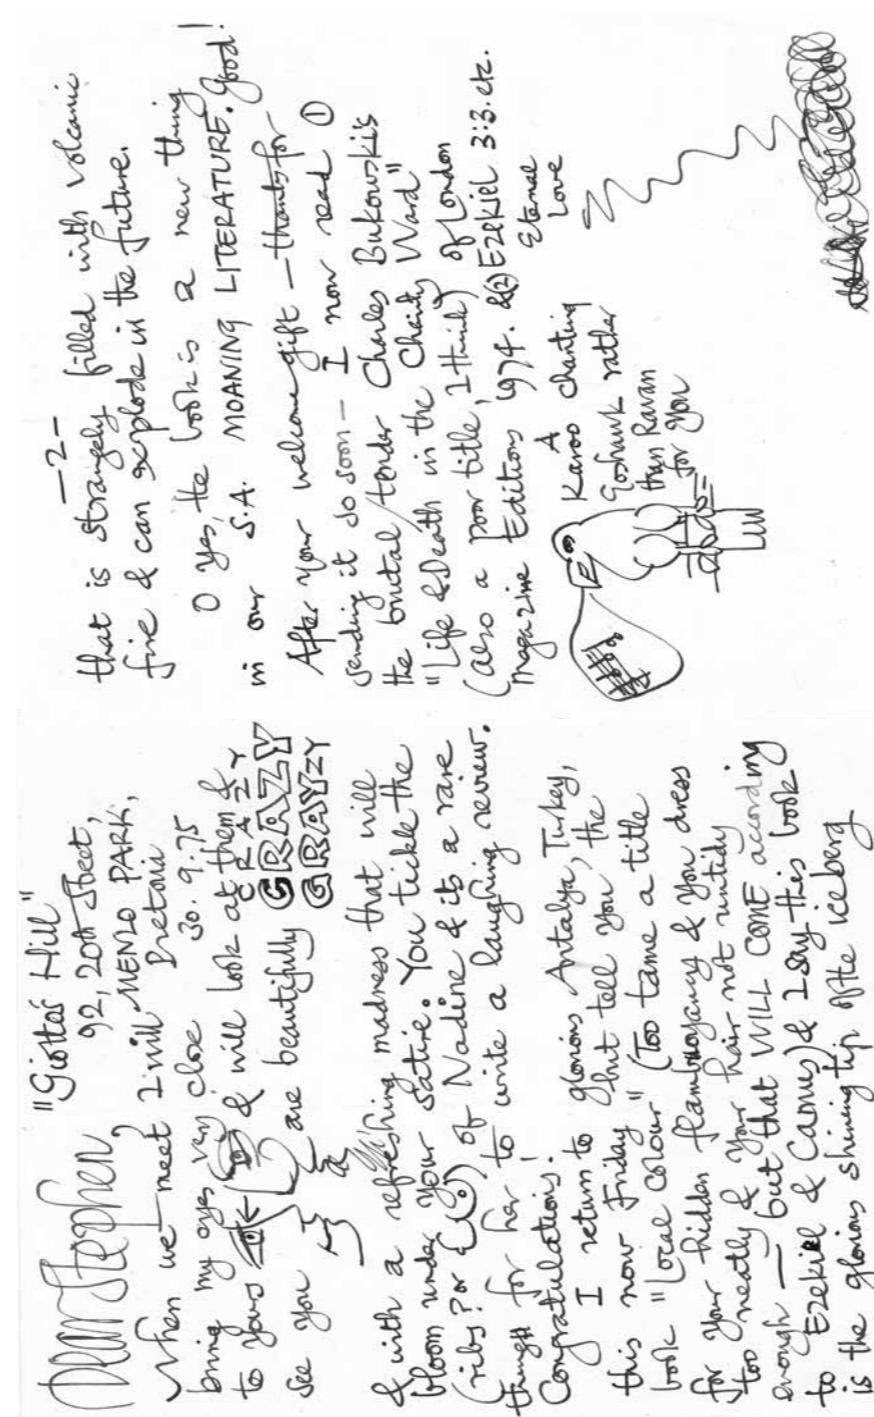 "Giotto's Hill"
92, 20th Street,
MENLO PARK,
Pretoria
30.9.75
Dear Stephen,
When we meet I will
bring my eyes very close
to yours & will look at them &
see you are beautifully CRAZY
GRAZY
GRAYZY
& with a refreshing madness that will
bloom under your satire. You tickle the
(ribs? or ) of Nadine & its a rare
thing for her to write a laughing review.
Congratulations.
I return to glorious Antalya, Turkey,
this now Friday but tell you, the
book "Local Colour" (Too tame a title
for your hidden flambuoyancy & you dress
too neatly & your hair not untidy
enough — but that WILL COME according
to Ezekiel & Camus) & I say this book
is the glorious shining tip of the iceberg
—2—
that is strangely filled with volcanic
fire & can explode in the future.
O yes, the book is a new thing
in our S.A. MOANING LITERATURE. Good!
After your welcome gift — thanks for
sending it so soon — I now read ①
the brutal/tender Charles Bukowski's
"Life & Death in the Charity Ward"
(also a poor title, I think) of London
Magazine Editions 1974. &(2) EZEKIEL 3:3. etc.
Eternal
Love
A
Karoo chanting
Goshawk rather
than Ravan
for you